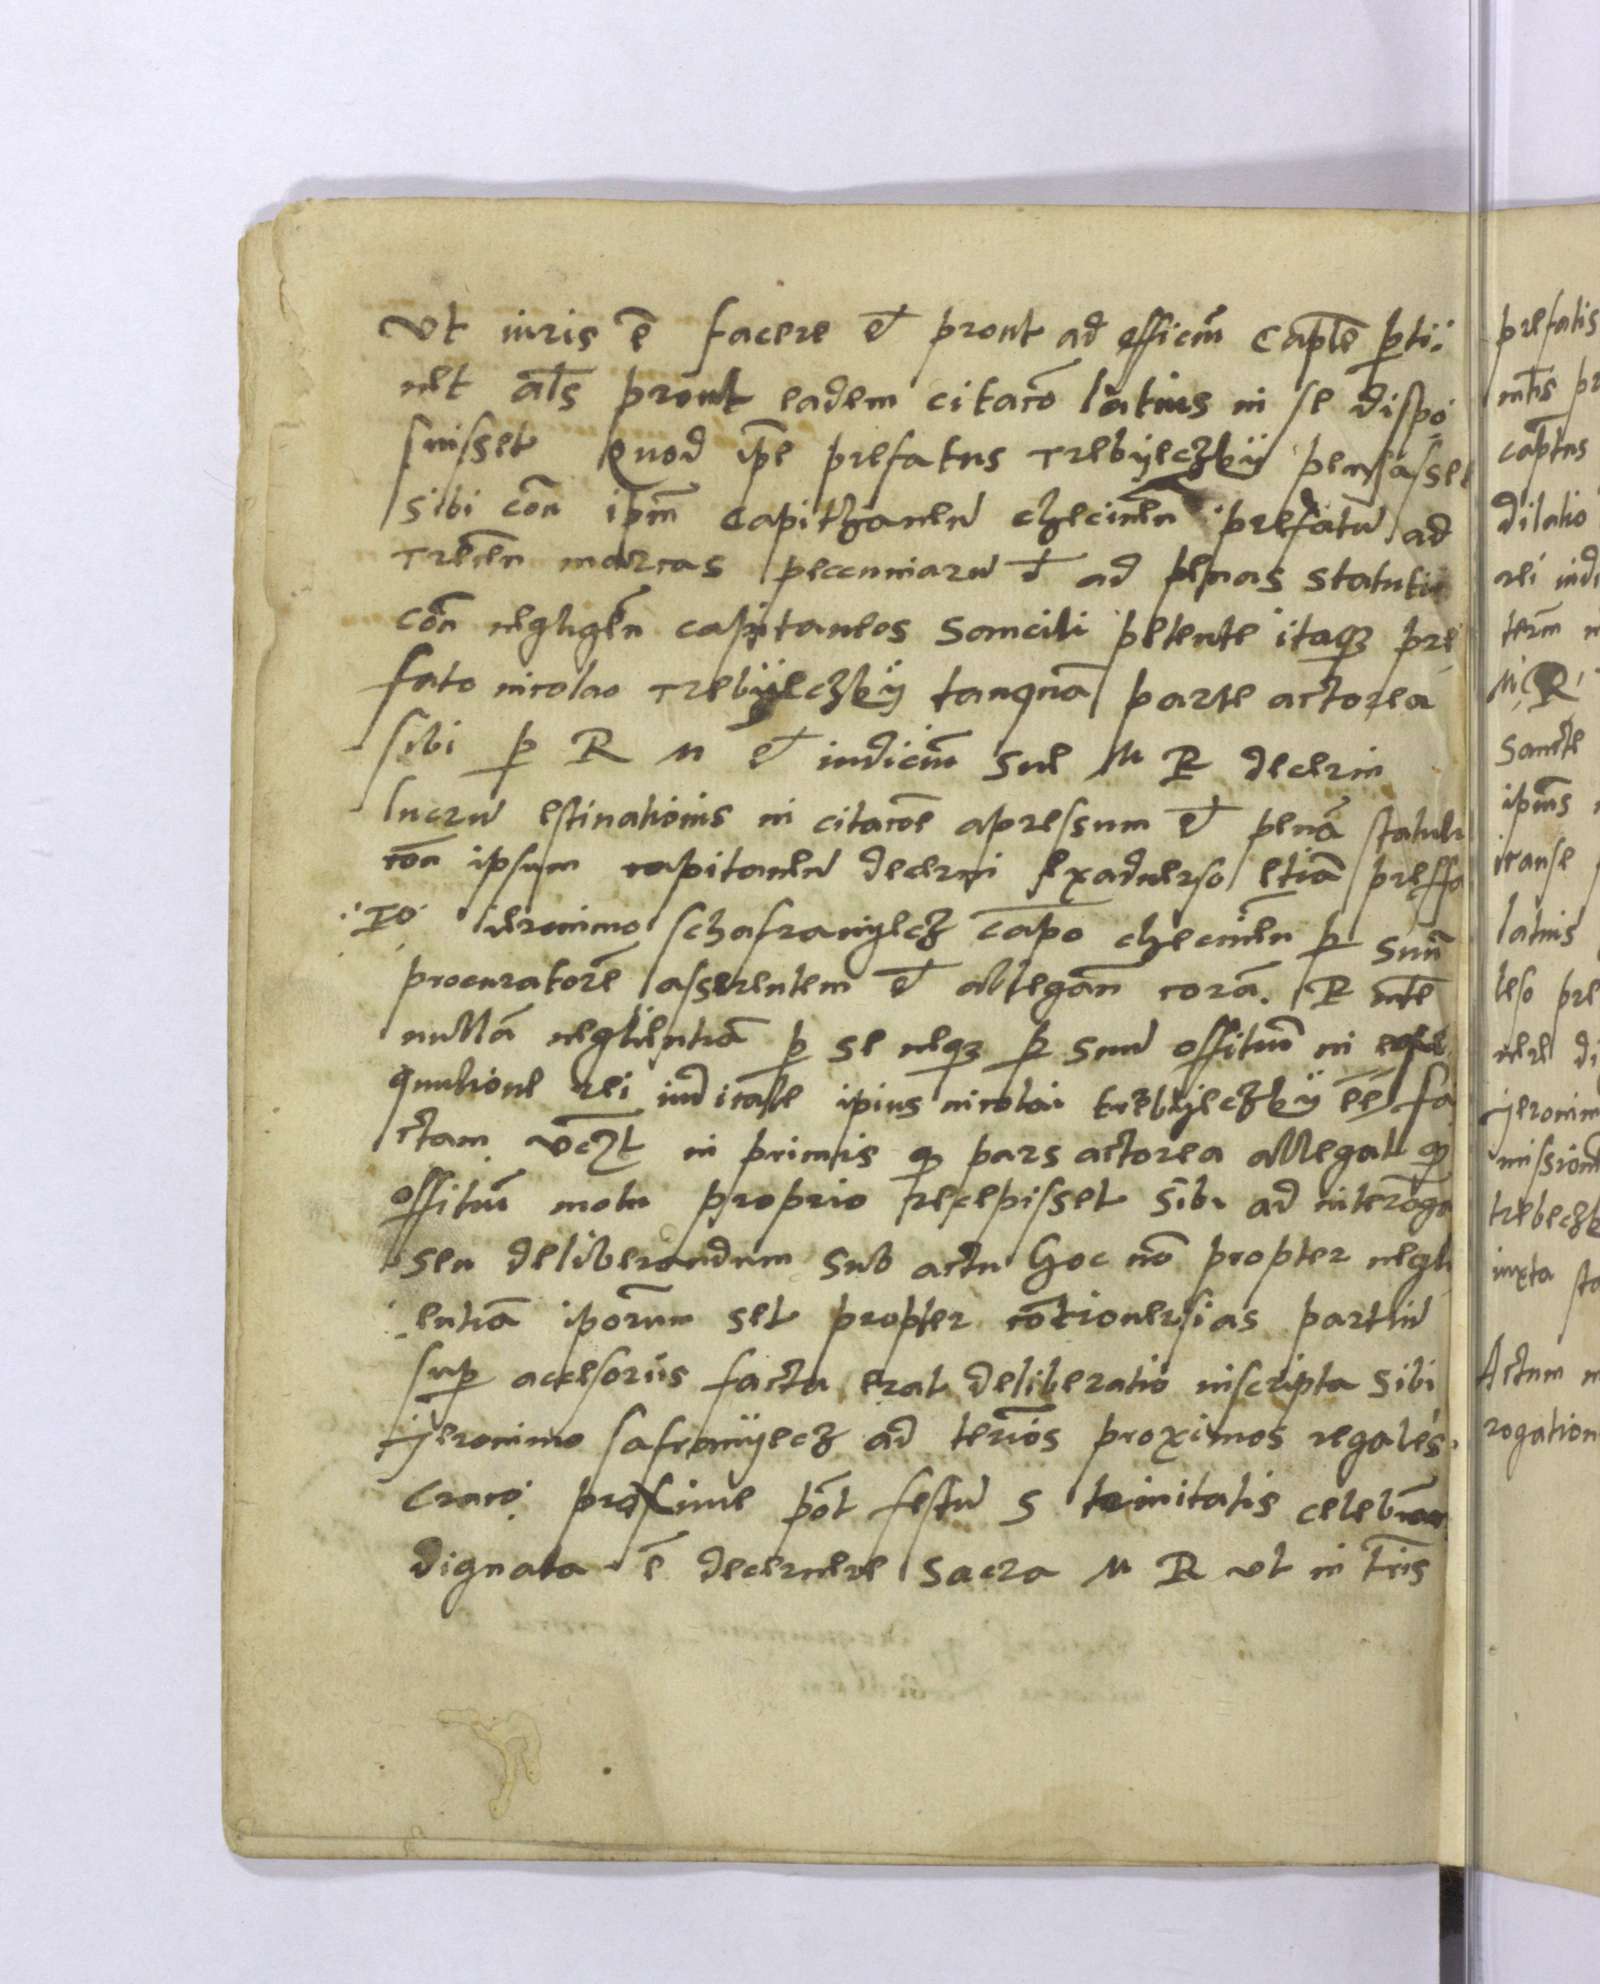 Ut iuris ē facere et prout ad officiū Captē ꝑti-
net als prout eadem citatō latius in se dispo
suisset Quod ipē prefatus Trebyeczky pensasset
sibi cōn ipm̄ Capithaneū checinēn prefatū ad
Trecēn marcas peccuniarū et ad penas statuti
cōn negligēn capitaneos Sanciti petente itaqꝫ pre
fato nicolao Trebyeczky tanquā parte actorea
sibi ꝑ R M et iudiciū Sue M R decerni
lucrū estinationis in citatōe apressum et penā statuti
cōn ipsum capitaneū decerni Exaduerso etiā preffa
to Ieronimo schafranyecz capō checinēn ꝑ suū
procuratorē asserentem et allegan̄ corā R mte
nullā neglientiā ꝑ se neqꝫ ꝑ suū offitiū in
qutione rei iudicate ipius nicolai trebyeczky ēē fa
ctam in primis qꝫ pars actorea allegat qꝫ
offitiū motu proprio recepisset sibi ad interoga
seu deliberandum sub actu hoc nō propter negli
entiā iporum set propter cōtrouersias partiū
suꝑ accesoriis facta erat deliberatio inscripta sibi
yeronimo safranyecz ad teriōs proximos regales
Craco proxime pōt festū S trinitatis celebran
dignata ē decernere Sacra M R ut in tris
prefatis
captus
dilatio
rei iudi
term̄
M R
Sancte
ipius
latius
leso pre
nere di
yeronim
missione
trebeczk
iuxta sta
Actum
rogation